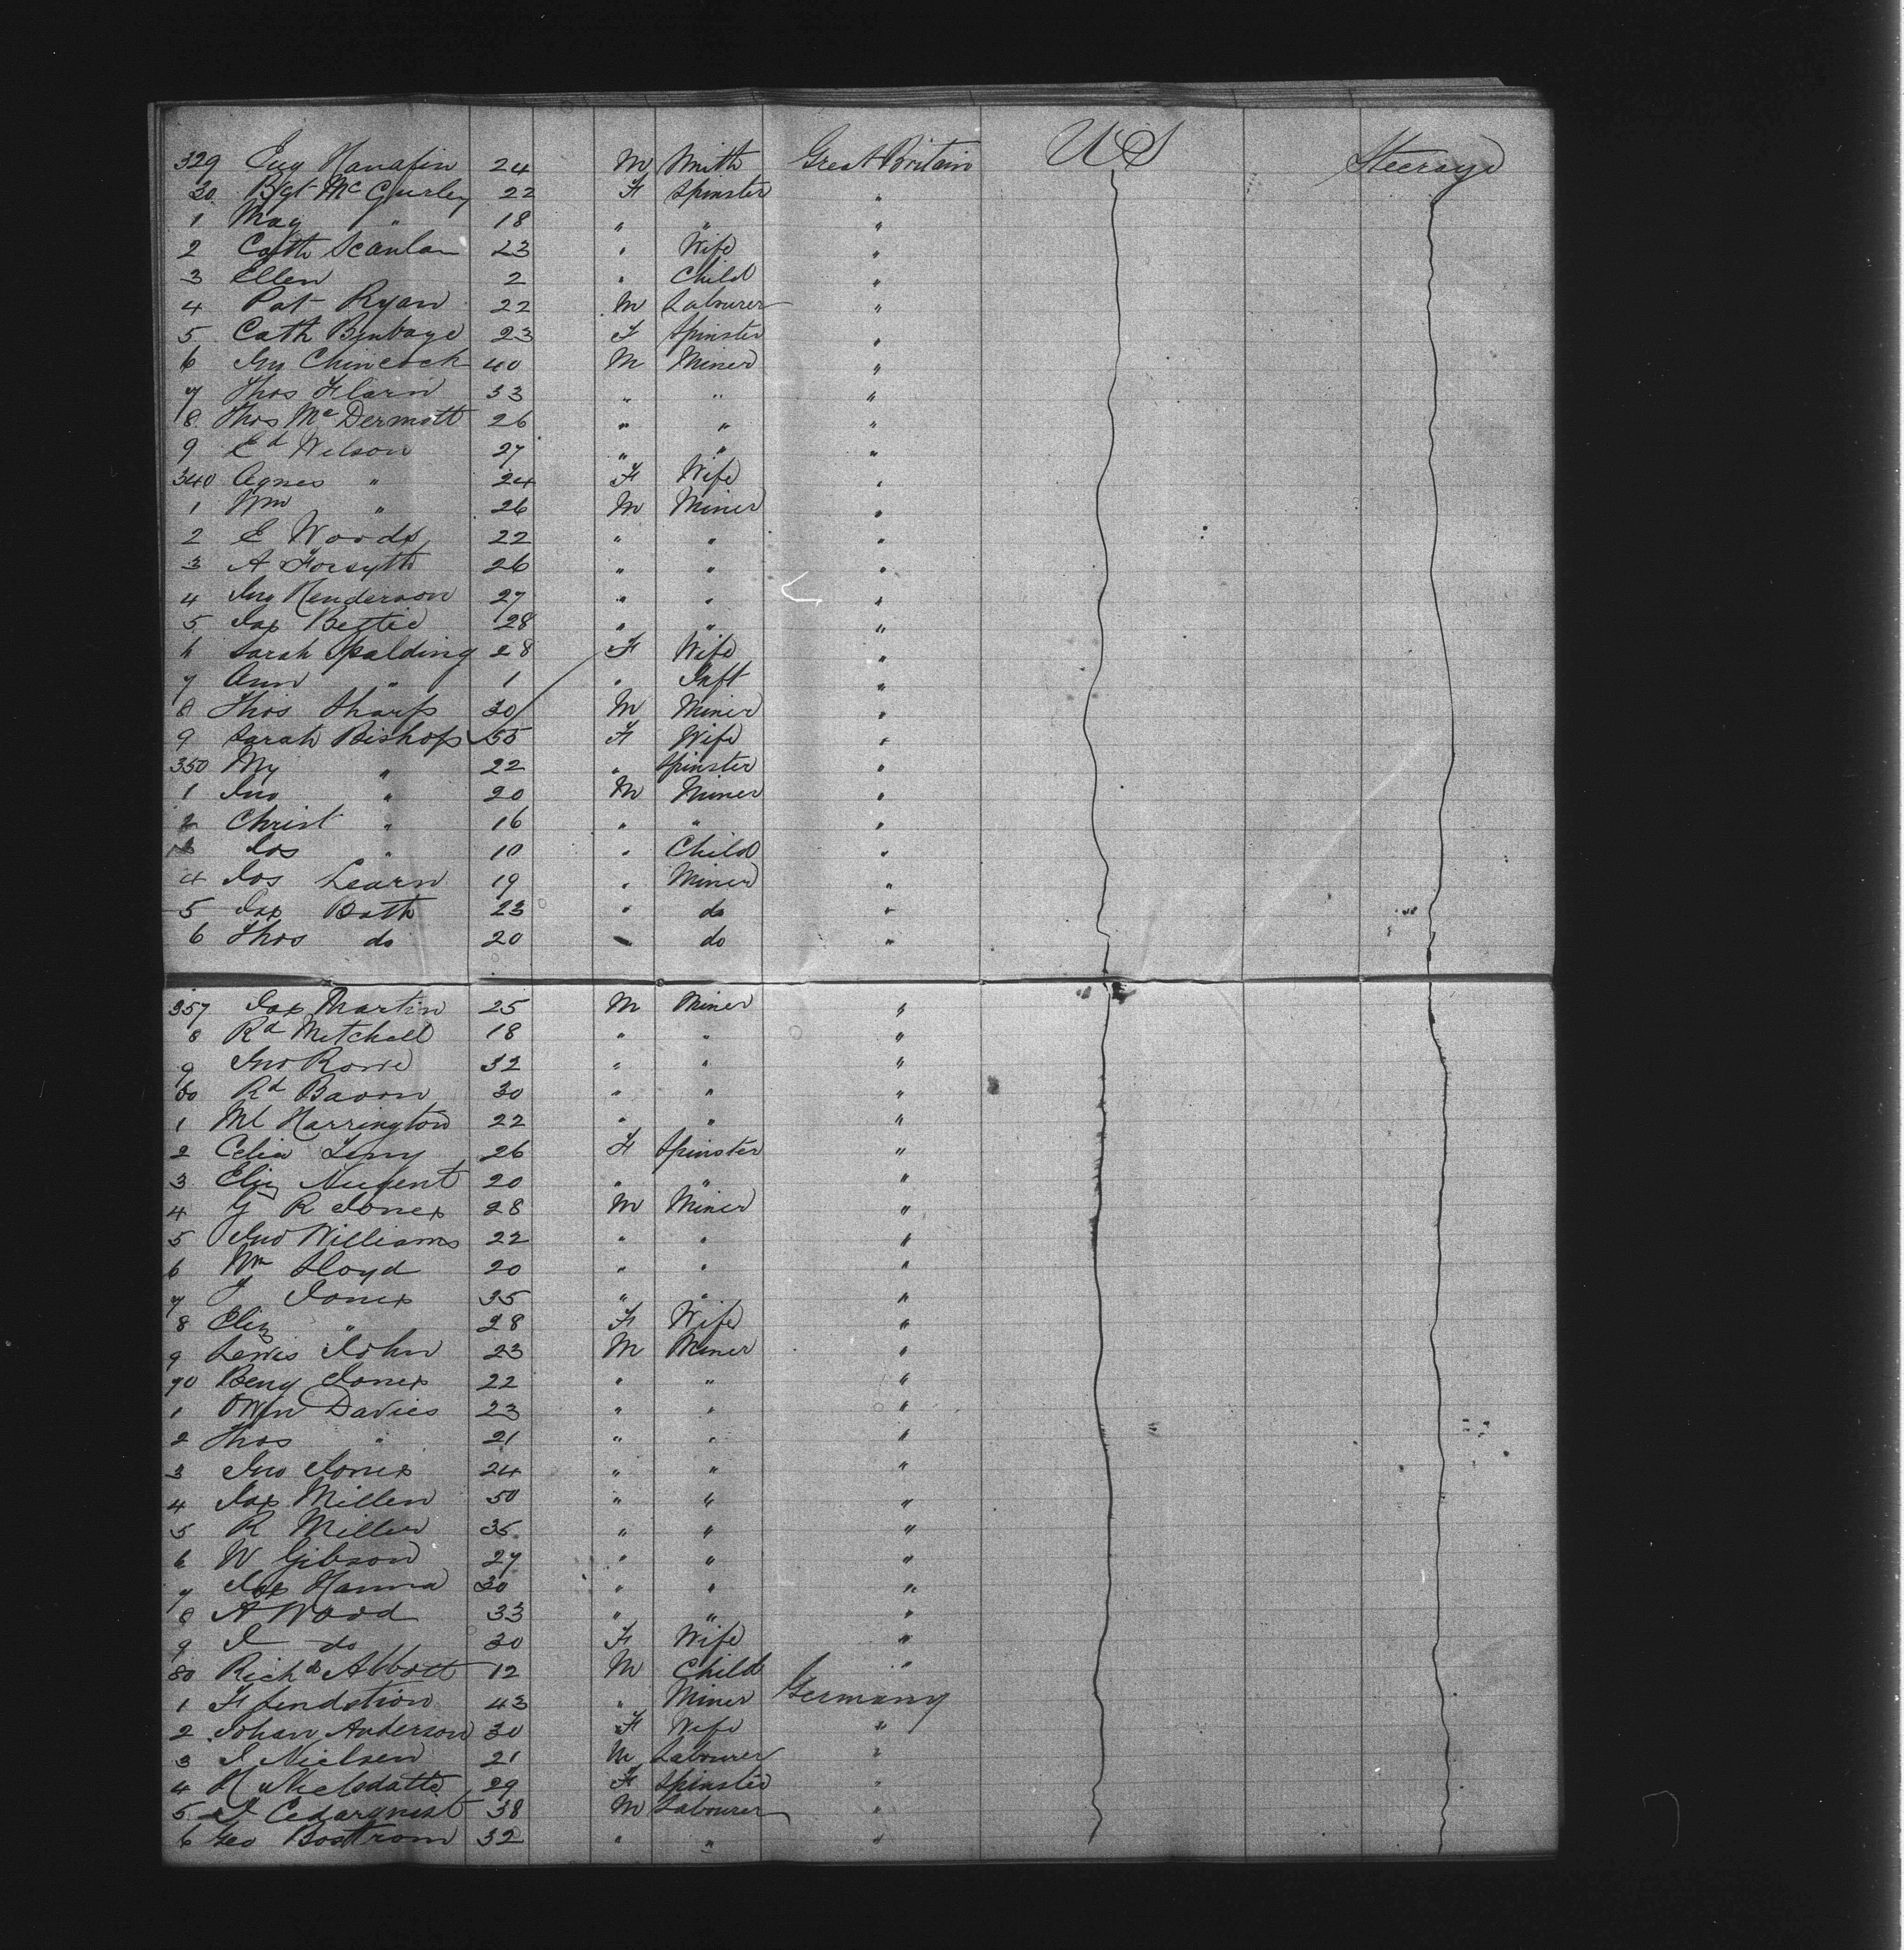 329 Eug Hanafin 24 M Smith Great Britain US Steerage
30 Bgt McGurley 22 F Spinster "
1 May " 18 " " "
2 Cath Scanlan 23 " Wife "
3 Ellen 2 " Child "
4 Pat Ryan 22 M Labourer "
5 Cath 23 F Spinster "
6 Jno Chincock 40 M Miner "
7 Thos 33 " " "
8 Thos McDermott 26 " " "
9 Ed Wilson 27 " " "
340 Agnes " 24 F Wife "
1 Wm " 26 M Miner "
2 E Woods 22 " " "
3 A Forsyth 26 " " "
4 Jno Henderson 27 " " "
5 Jas Bettie 28 " " "
6 Sarah Spalding 28 F Wife "
7 Ann " 1 " Inft "
8 Thos Sharp 30 M Miner "
9 Sarah Bishop 55 F Wife "
350 My " 22 " Spinster "
1 Jno " 20 M Miner "
2 Christ " 16 " " "
3 Jos " 10 " Child "
4 Jos Learn 19 " Miner "
5 Jas Bath 23 " do "
6 Thos do 20 " do "
357 Jas Martin 25 M Miner "
8 Rd Mitchell 18 " " "
9 Jno Rowe 32 " " "
60 Rd Bavon 30 " " "
1 Ml Harrington 22 " " "
2 Celia 26 F Spinster "
3 Eliz Nugent 20 " " "
4 G R Jones 28 M Miner "
5 Jno Williams 22 " " "
6 Wm Lloyd 20 " " "
7 J Jones 35 " " "
8 Eliz " 28 F Wife "
9 Lewis John 23 M Miner "
70 Benj Jones 22 " " "
1 Owen Davies 23 " " "
2 Thos " 21 " " "
3 Jno Jones 24 " " "
4 Jas Millen 50 " " "
5 R Miller 35 " " "
6 W Gibson 27 " " "
7 Jas Hanna 30 " " "
8 A Wood 33 " " "
9 I do 30 F Wife "
80 Richd Abbott 12 M Child "
1 F Lindstion 43 " Miner Germany
2 Johan Anderson 30 F Wife "
3 I Nielsen 21 M Labourer "
4 H Nielsdatte 29 F Spinster "
5 J Cedarquist 38 M Labourer "
6 Geo Bostrom 32 " " "